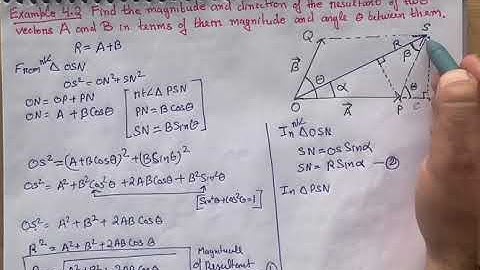 Example 4.2 Find the magnitude and direction of the resultant of two
vectors A and B in terms of them magnitude and angle θ between them.
R = A+B
From Δ OSN
OS² = ON²+SN²
ON = OP+PN
ON = A + BCosθ
in Δ PSN
PN = BCosθ
SN = BSinθ
OS² = (A+BCosθ)² + (BSinθ)²
OS² = A²+B²Cos²θ +2ABCosθ + B²Sin²θ
[Sin²θ+Cos²θ=1]
OS² = A² + B² + 2ABCosθ
R² = A²+B²+2ABCosθ
A²+B²+2ABCosθ
Magnitude
of Resultant
①
Q
S
R
β
B
θ
α
θ
O
A
P
C
In ΔOSN
SN = OS Sinα
SN = R Sinα — ②
In ΔPSN